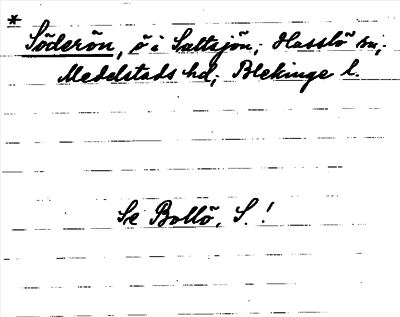 *
Söderön, ö i Saltsjön; Hasslö sn;
Medelstads hd; Blekinge l.
Se Bollö, S.!